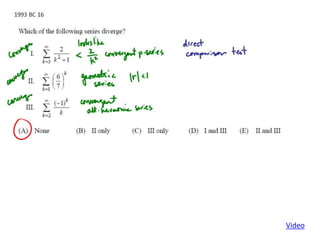 1993 BC 16
Which of the following series diverge?
converge I. ∞ ∑ k=3 2 / k² − 1 looks like < 2 / k² convergent p-series direct comparison test
converge II. ∞ ∑ k=1 (6/7)^k geometric series |r|<1
converge III. ∞ ∑ k=2 (−1)^k / k convergent alt. harmonic series
(A) None (B) II only (C) III only (D) I and III (E) II and III
Video